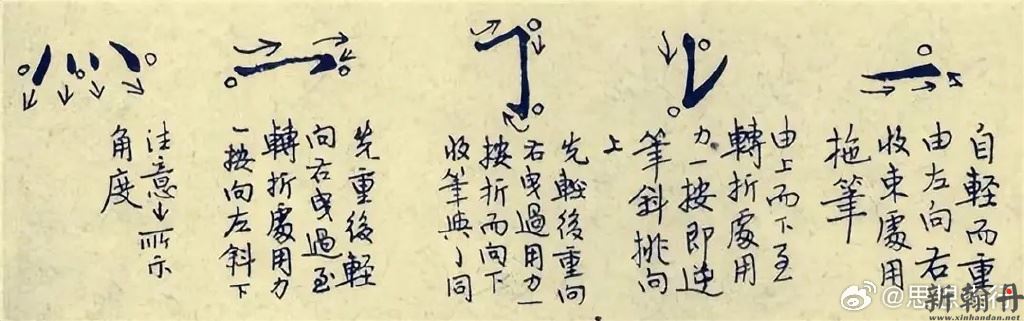 自輕而重
由左向右
收束處用
拖筆
由上而下至
轉折處用
力一按即逆
筆斜挑向
上
先輕後重向
右曳過用力一
按折而向下
收筆與亅同
先重後輕
向右曳過至
轉折處用力
一按向左斜下
注意↓所示
角度
新翰丹
www.xinhandan.net